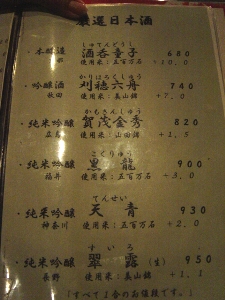 厳選日本酒
しゅてんどうじ
本醸造 酒呑童子 680
使用米:五百万石 +10.0
かりほろくしゅう
・吟醸酒 刈穂六舟 740
秋田 使用米:美山錦 +7.0
かもきんしゅう
・純米吟醸 賀茂金秀 820
広島 使用米:山田錦 +1.5
こくりゅう
・純米吟醸 黒龍 900
福井 使用米:五百万石 +3.0
てんせい
・純米吟醸 天青 930
神奈川 使用米:五百万石 +2.0
すいろ
・純米吟醸 翠露(生) 950
長野 使用米:美山錦 +1.
(すべて1合のお値段です。)